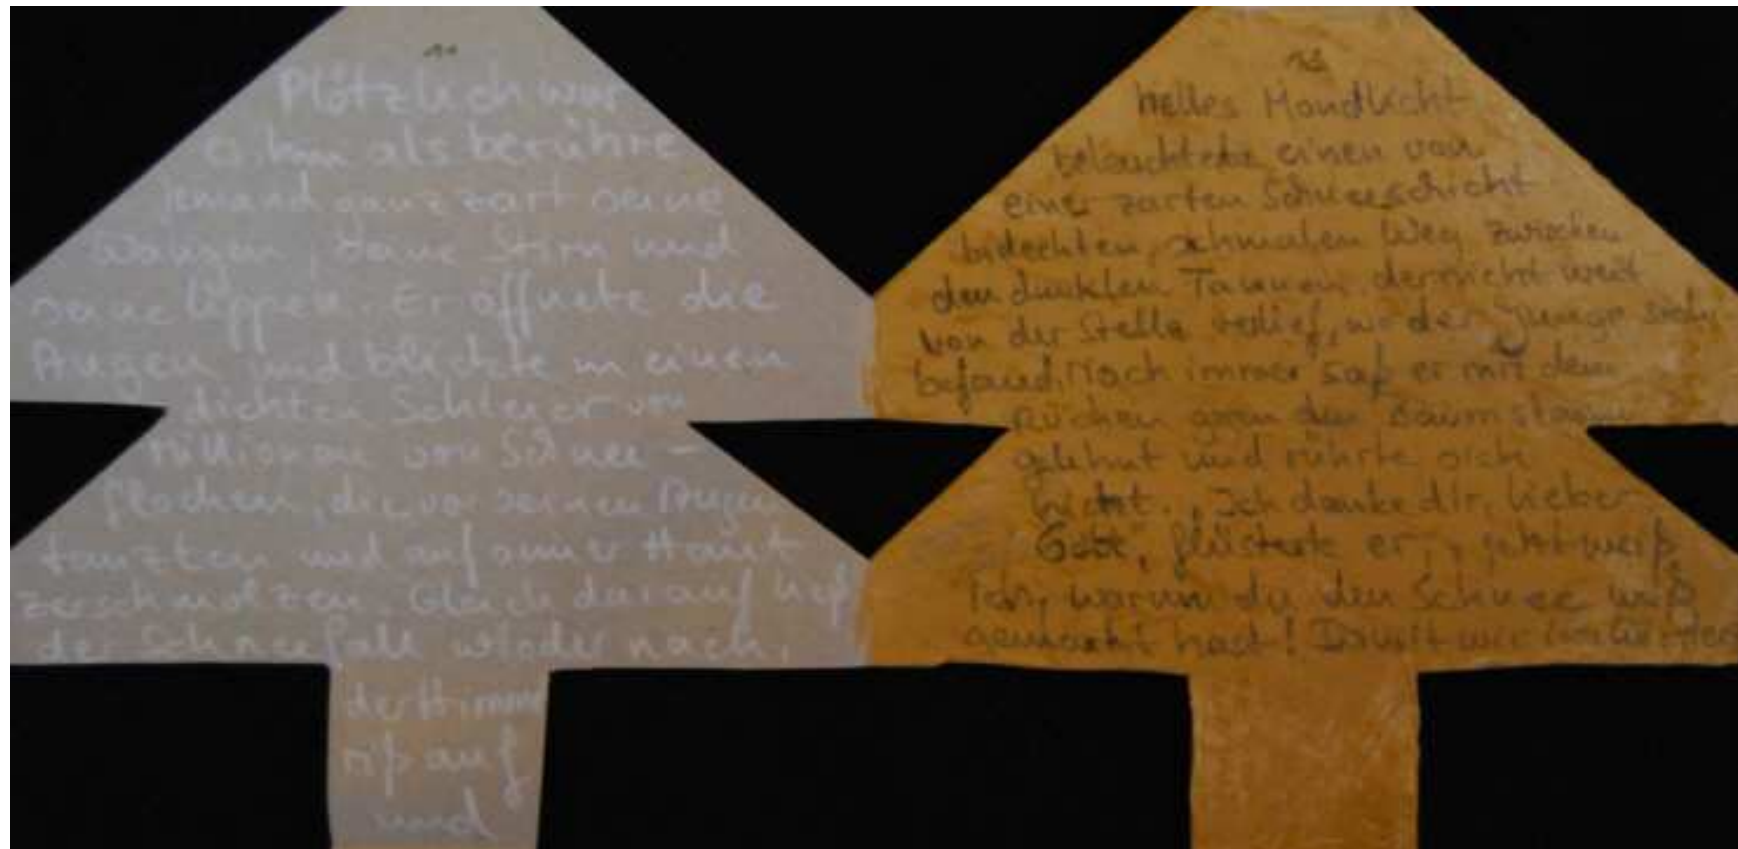 11
Plötzlich war
ihm als berühre
jemand ganz zart seine
Wangen, seine Stirn und
seine Lippen. Er öffnete die
Augen und blickte in einen
dichten Schleier von
Millionen von Schnee-
flocken, die vor seinen Augen
tanzten und auf seiner Haut
zerschmolzen. Gleich darauf ließ
der Schneefall wieder nach,
der Himmel
riß auf
und
helles Mondlicht
beleuchtete einen von
einer zarten Schneeschicht
bedeckten, schmalen Weg zwischen
den dunklen Tannen, der nicht weit
von der Stelle verlief, wo der Junge sich
befand. Noch immer saß er mit dem
Rücken gegen den Baumstamm
gelehnt und rührte sich
nicht. „Ich danke dir, lieber
Gott", flüsterte er, „jetzt weiß
ich, warum du den Schnee weiß
gemacht hast! Damit wir